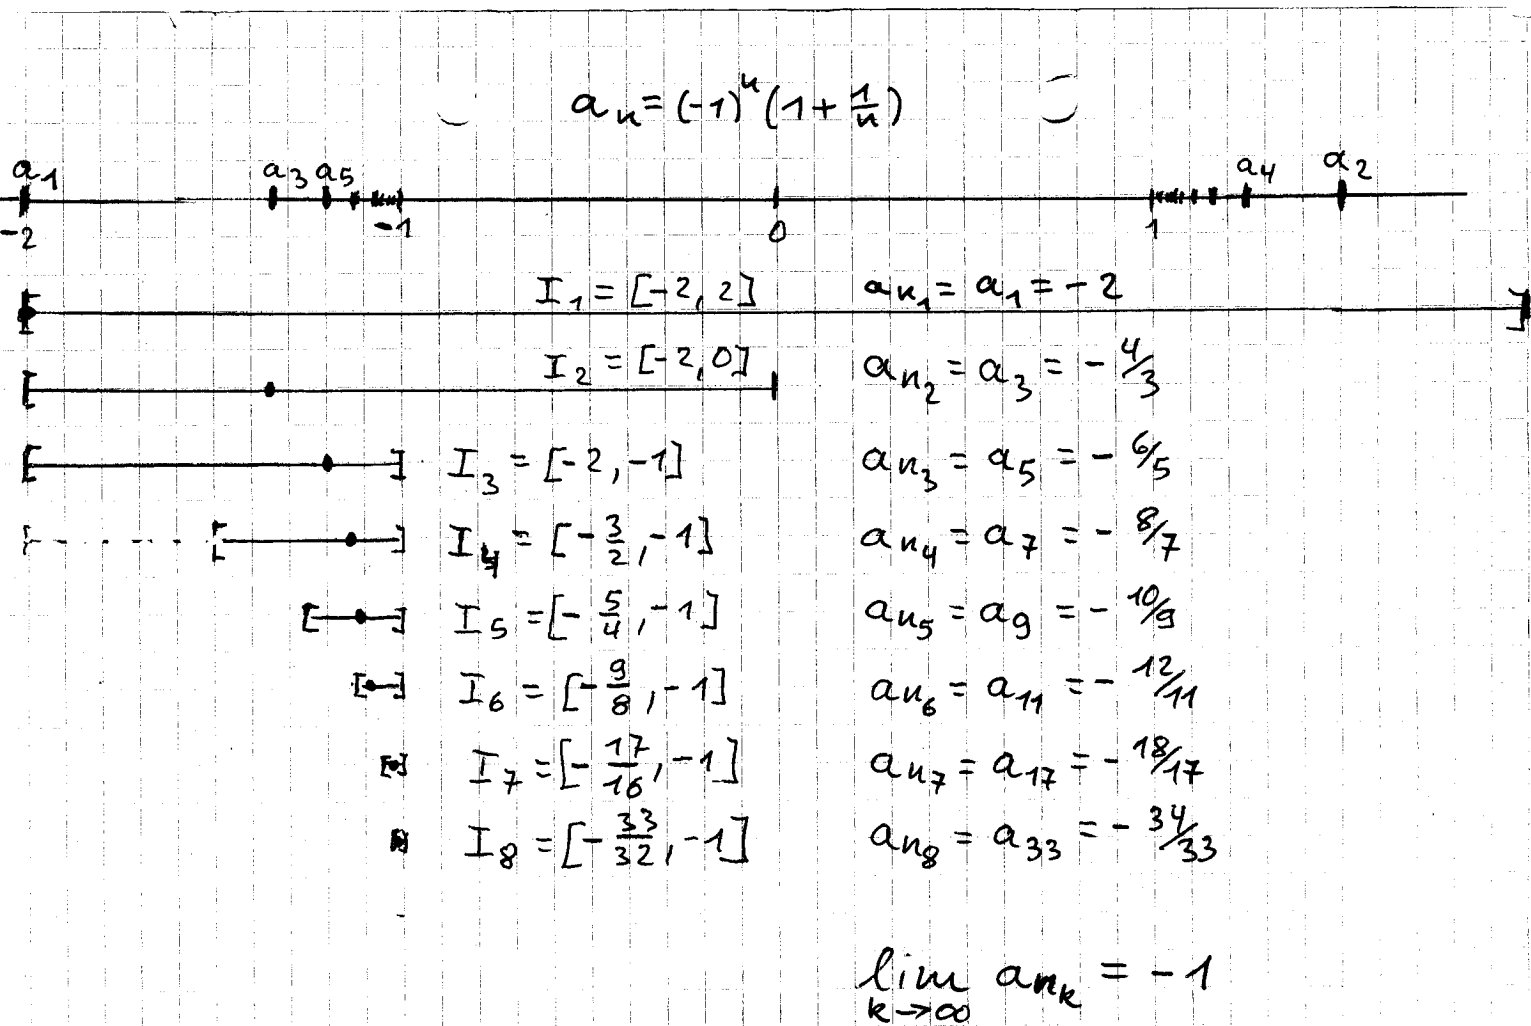 aₙ = (-1)ⁿ (1 + 1/n)
a₁ a₃ a₅ a₄ a₂
-2 -1 0 1
I₁ = [-2, 2] aₙ₁ = a₁ = -2
I₂ = [-2, 0] aₙ₂ = a₃ = - 4/3
I₃ = [-2, -1] aₙ₃ = a₅ = - 6/5
I₄ = [- 3/2, -1] aₙ₄ = a₇ = - 8/7
I₅ = [- 5/4, -1] aₙ₅ = a₉ = - 10/9
I₆ = [- 9/8, -1] aₙ₆ = a₁₁ = - 12/11
I₇ = [- 17/16, -1] aₙ₇ = a₁₇ = - 18/17
I₈ = [- 33/32, -1] aₙ₈ = a₃₃ = - 34/33
lim aₙₖ = -1
k→∞